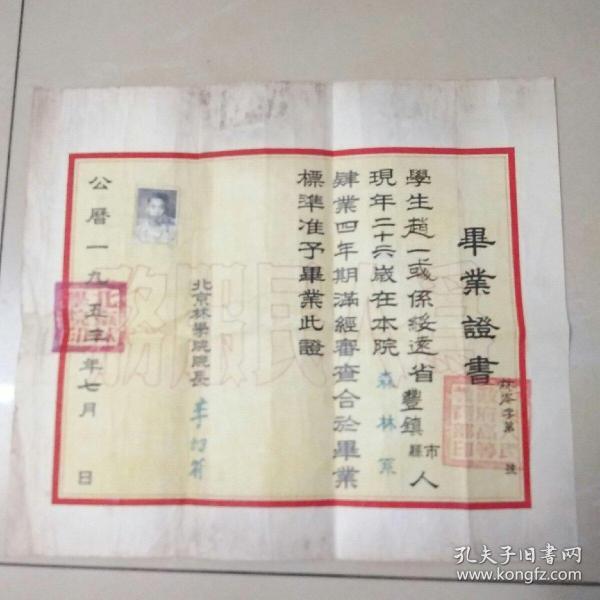 畢業證書
學生趙一或係綏遠省豐鎮市縣人
現年二十六歲在本院森林系
肄業四年期滿經審查合於畢業
標準准予畢業此證
北京林學院院長
公曆一九五三年七月 日
為人民服務
孔夫子旧书网
www.kongfz.com